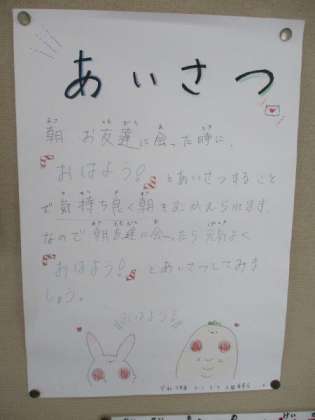 あいさつ
朝 お友達に会った時に、
おはよう! とあいさつすること
で気持ち良く朝をむかえられます。
なので朝友達に会ったら元気よく
おはよう! とあいさつしてみま
しょう。
おはよう!